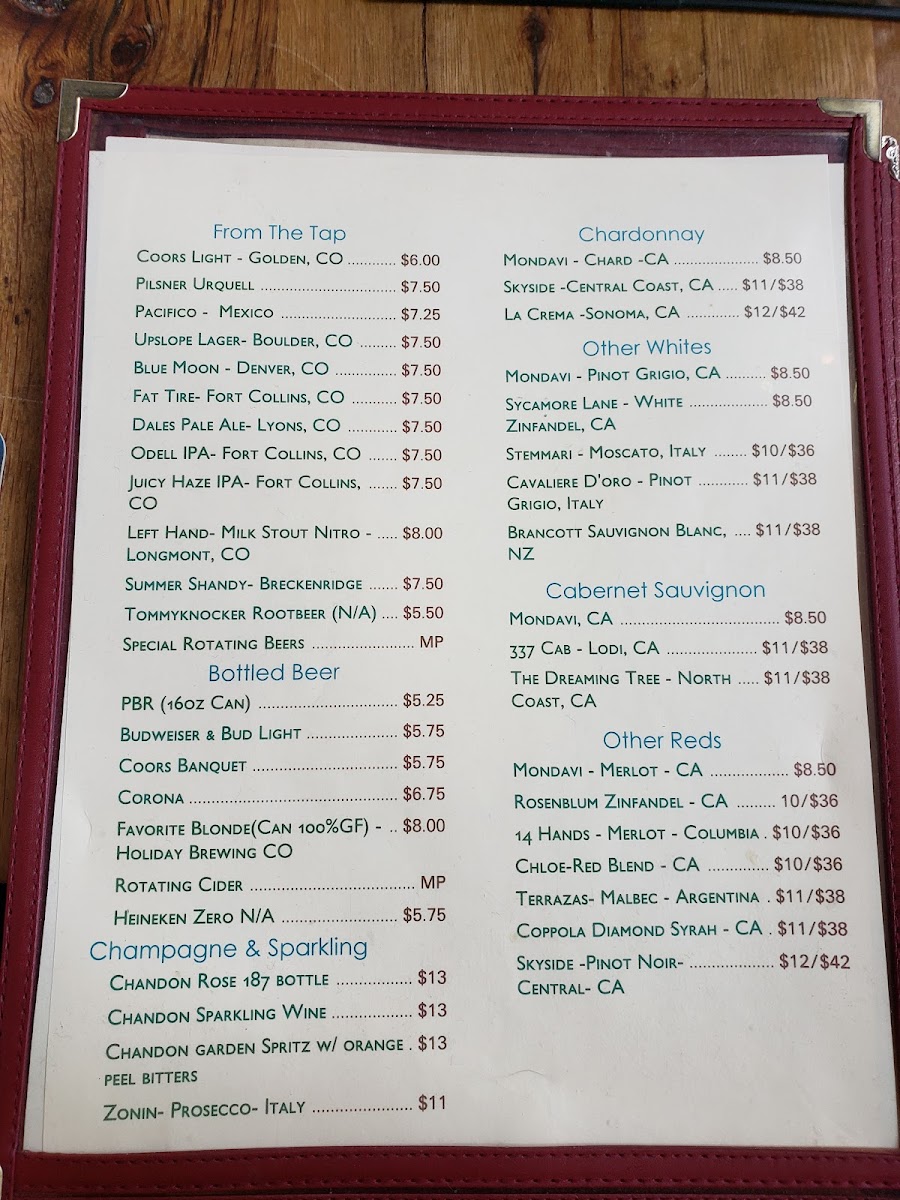 From The Tap
Coors Light - Golden, CO ........... $6.00
Pilsner Urquell ............................... $7.50
Pacifico - Mexico .......................... $7.25
Upslope Lager- Boulder, CO ........ $7.50
Blue Moon - Denver, CO .............. $7.50
Fat Tire- Fort Collins, CO ........... $7.50
Dales Pale Ale- Lyons, CO ............ $7.50
Odell IPA- Fort Collins, CO ....... $7.50
Juicy Haze IPA- Fort Collins, ....... $7.50
CO
Left Hand- Milk Stout Nitro - ..... $8.00
Longmont, CO
Summer Shandy- Breckenridge ....... $7.50
Tommyknocker Rootbeer (N/A) .... $5.50
Special Rotating Beers ....................... MP
Bottled Beer
PBR (16oz Can) ............................... $5.25
Budweiser & Bud Light .................... $5.75
Coors Banquet ................................ $5.75
Corona .............................................. $6.75
Favorite Blonde(Can 100%GF) - .. $8.00
Holiday Brewing CO
Rotating Cider ..................................... MP
Heineken Zero N/A .......................... $5.75
Champagne & Sparkling
Chandon Rose 187 bottle ................. $13
Chandon Sparkling Wine .................. $13
Chandon garden Spritz w/ orange . $13
peel bitters
Zonin- Prosecco- Italy ...................... $11
Chardonnay
Mondavi - Chard -CA .................... $8.50
Skyside -Central Coast, CA ..... $11/$38
La Crema -Sonoma, CA ............ $12/$42
Other Whites
Mondavi - Pinot Grigio, CA ......... $8.50
Sycamore Lane - White .................. $8.50
Zinfandel, CA
Stemmari - Moscato, Italy ........ $10/$36
Cavaliere D'oro - Pinot ............ $11/$38
Grigio, Italy
Brancott Sauvignon Blanc, .... $11/$38
NZ
Cabernet Sauvignon
Mondavi, CA .................................... $8.50
337 Cab - Lodi, CA .................... $11/$38
The Dreaming Tree - North ..... $11/$38
Coast, CA
Other Reds
Mondavi - Merlot - CA .................. $8.50
Rosenblum Zinfandel - CA ......... 10/$36
14 Hands - Merlot - Columbia . $10/$36
Chloe-Red Blend - CA .............. $10/$36
Terrazas- Malbec - Argentina . $11/$38
Coppola Diamond Syrah - CA . $11/$38
Skyside -Pinot Noir- ................... $12/$42
Central- CA